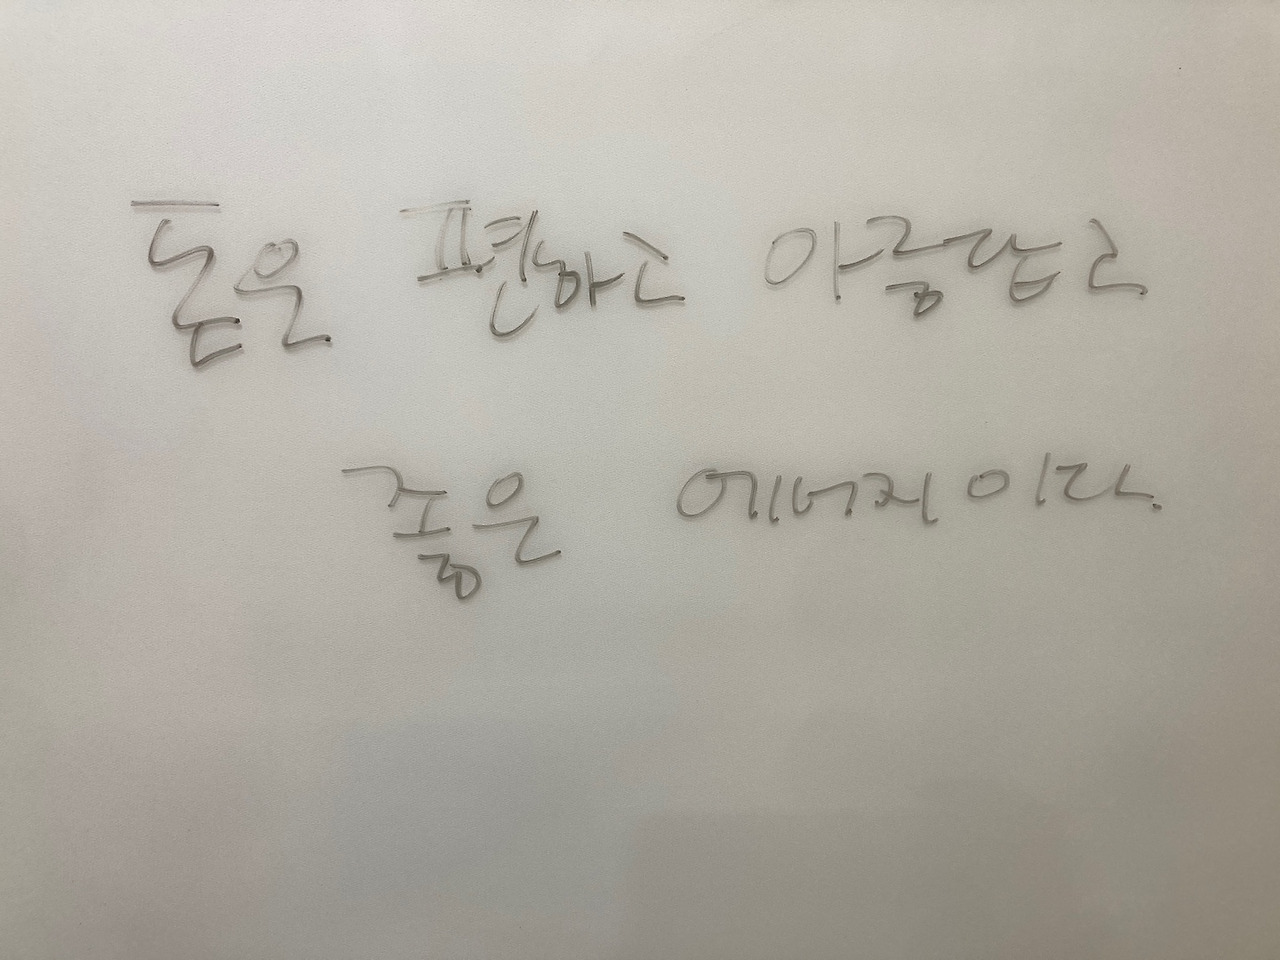 돈은 편하고 아름답고
좋은 에너지이다.